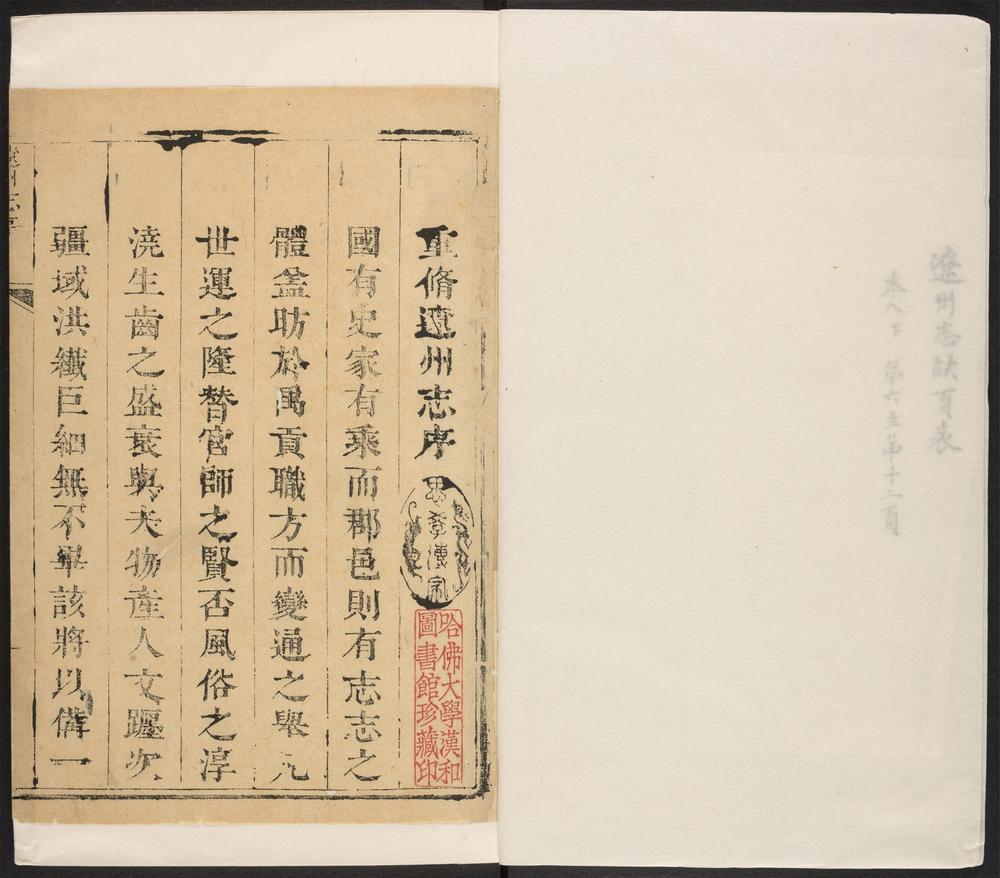 遼州志缺頁表
卷八下 第六至第十二頁
重脩遼州志序
忠孝傳家
哈佛大學漢和
圖書館珍藏印
國有史家有乘而郡邑則有志志之
體盖昉於禹貢職方而變通之舉凡
世運之隆替官師之賢否風俗之淳
澆生齒之盛衰與夫物產人文躔次
疆域洪纖巨細無不畢該將以備一
遼州志序